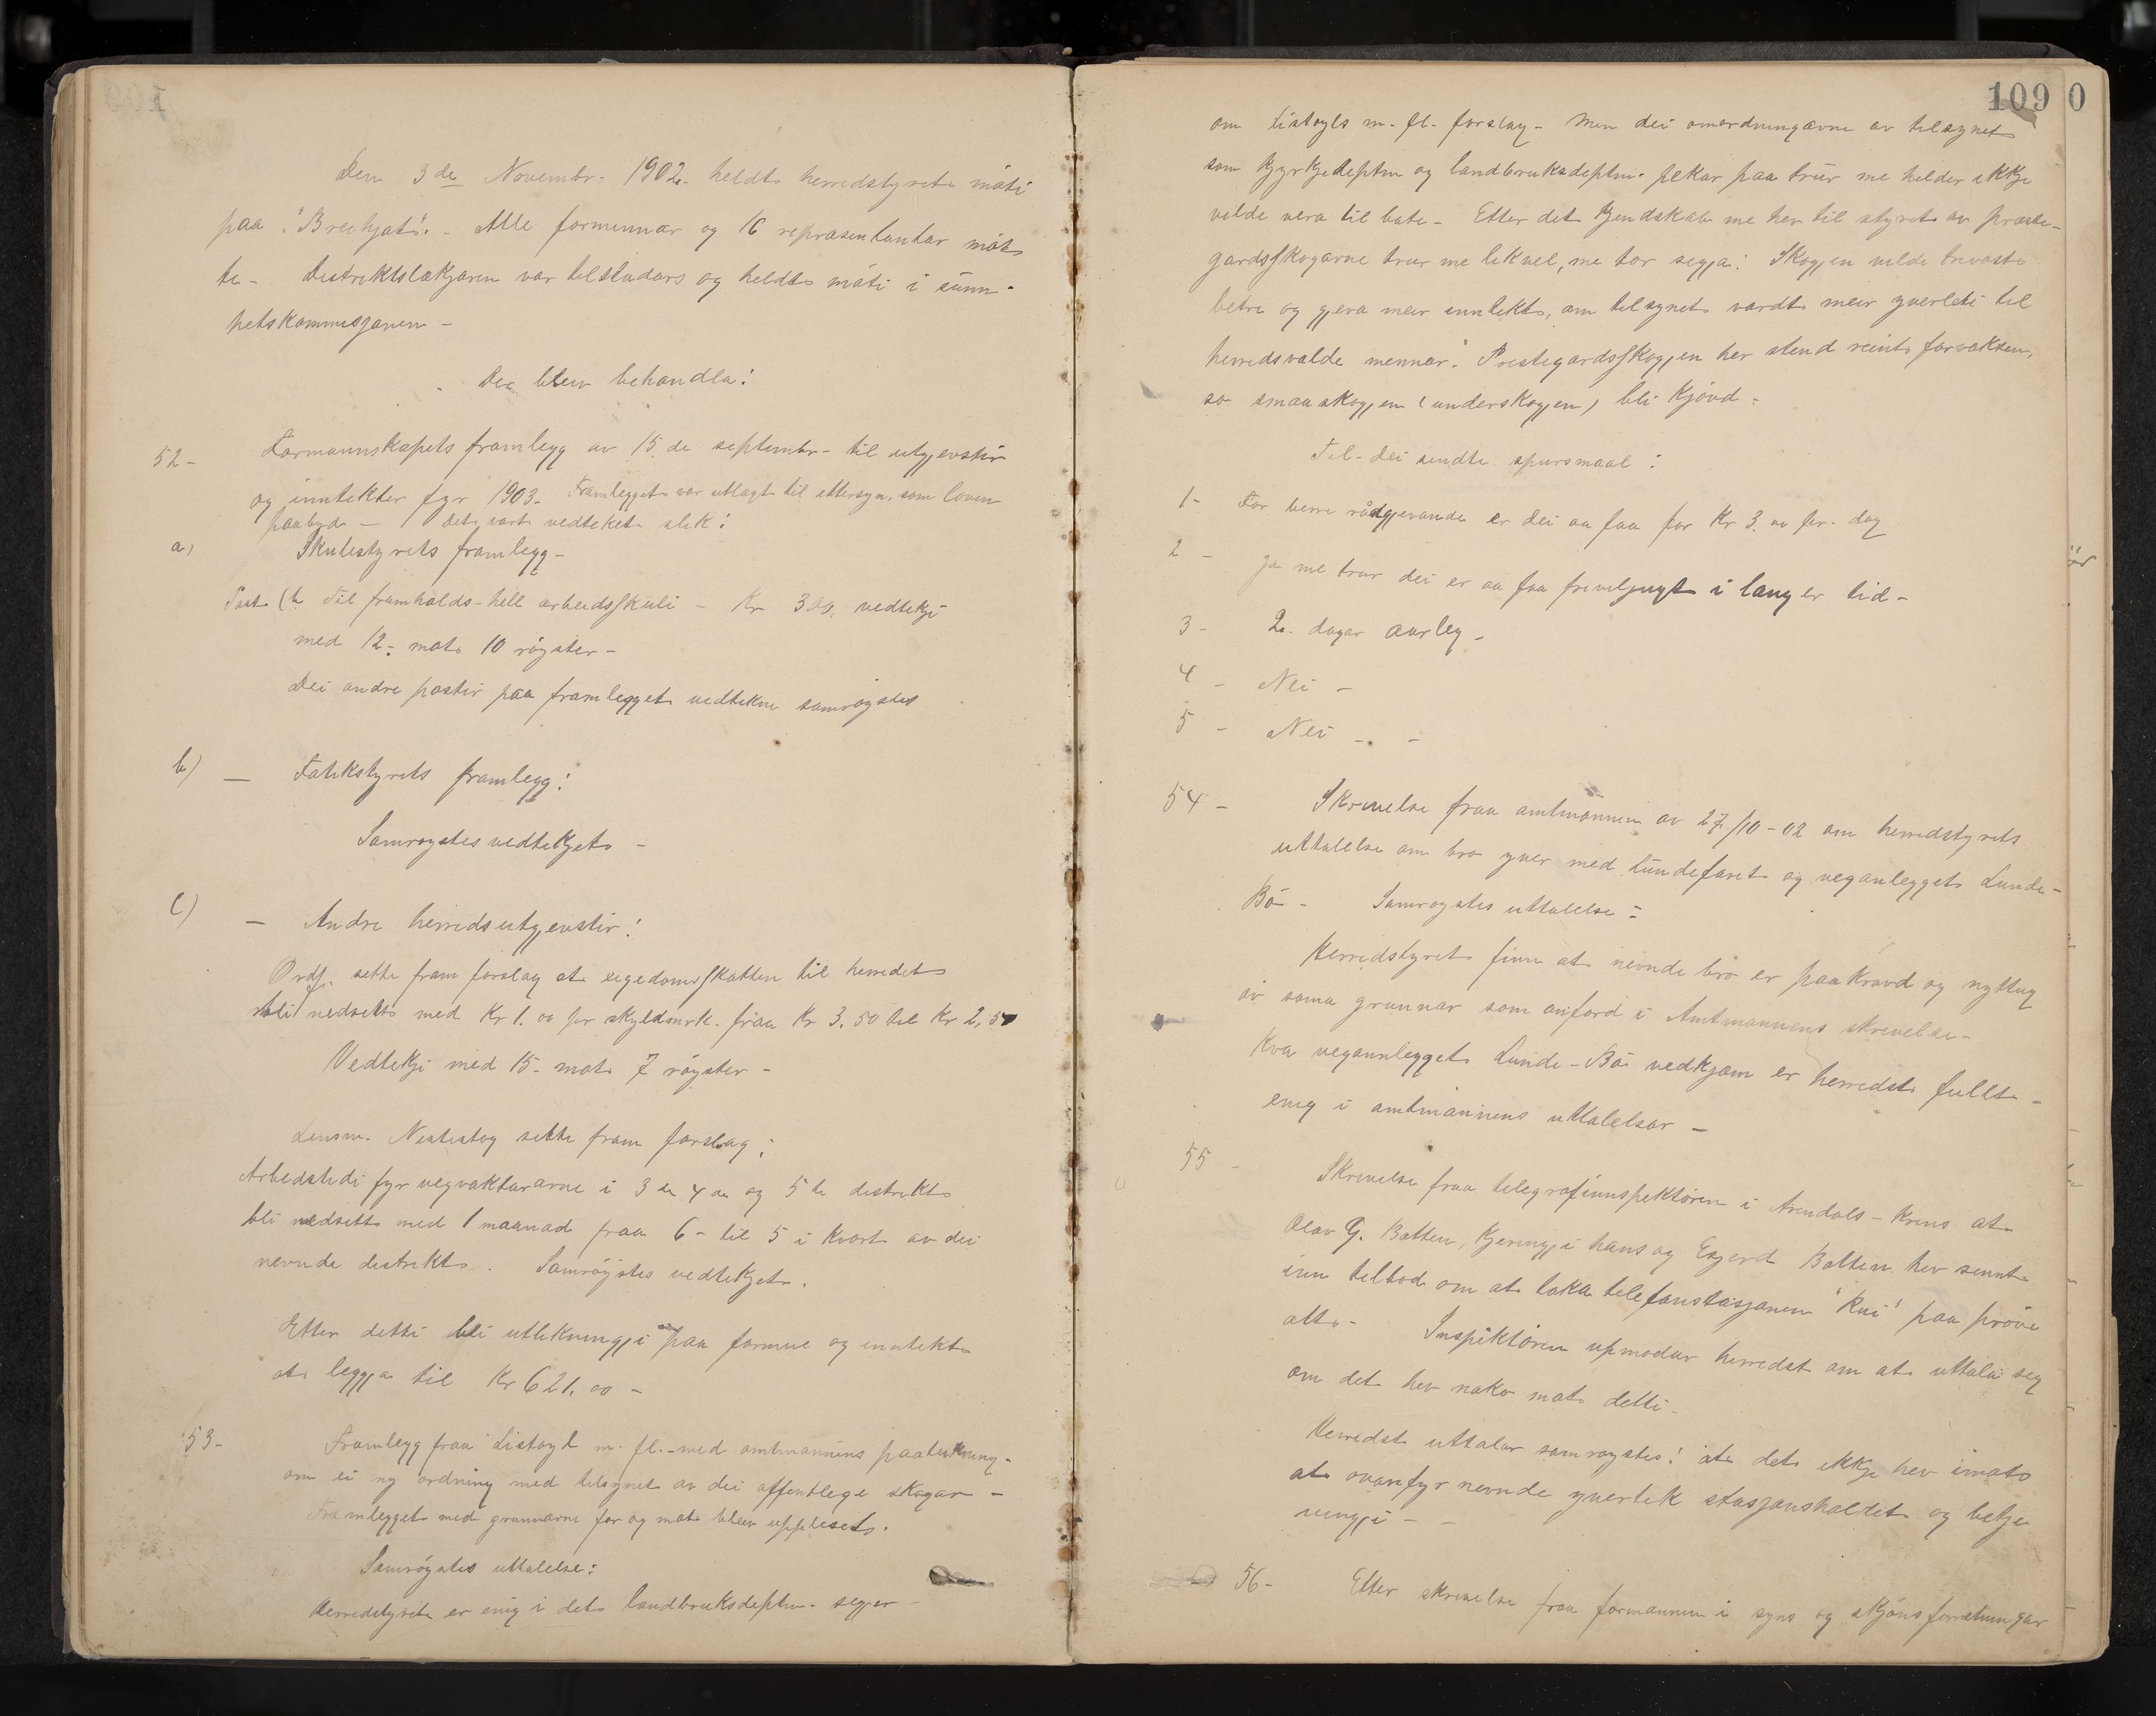 Den 3de Novembr. 1902 heldt herredstyret möti
paa "Breihjat". - Alle formennar og 16 representantar möt-
te - Distriktslækjaren var tilstadars og heldt möti i sunn-
hetskommisjonen -
Der bleiv behandla:
52 - Formannskapets framlegg av 15de septembr. til utgjevstir
og inntekter fyr 1903 - Framlegget var utlagt til ettersyn, som loven
paabyd - Det vart vedteket slik:
a) Skulestyrets framlegg -
Post (b Til framhalds-hell arbeidsskuli - Kr 300, vedtekji
med 12 - mot 10 röyster -
Dei andre postir paa framlegget vedtekne samröystes
b) - Fatikstyrets framlegg:
Samroystes vedtekjet -
c) - Andre herredsutgjevstir:
Ordf. sette fram forslag at eigedomsskatten til herredet
bli nedsett med Kr 1.00 pr skyldmrk. fraa Kr 3,50 til Kr 2,50
Vedtekji med 15 - mot 7 röyster -
Lensm. Nestestog sette fram forslag:
Arbedstidi fyr vegvaktararne i 3de 4de og 5te distrikt
bli nedsett med 1 maanad fraa 6 - til 5 i kvart av dei
nevnde distrikt. Samröystes vedtekjet.
Etter detti bli utlikningji paa formue og inntekt
at leggja til Kr 621,00 -
53 - Framlegg fraa Listoyl m. fl. - med amtmannens paateikning -
om ei ny ordning med tilsynet av dei offentlege skogar -
Framlegget med grunnarne for og mot bleiv upplesets.
Samröystes uttalelse:
Herredstyret er enig i det landbruksdeptm. segjer
109 0
om Listoyls m. fl. forslag - Men dei omordningarne av tilsynet
som Kyrkjedeptm og landbruksdeptm. pekar paa trur me helder ikkje
vilde vera til bate - Etter det kjendskab me hev til styret av preste-
gardsskogarne trur me likvel, me tor segja: Skogjen vilde trivast
betre og gjeva meir inntekt, om tilsynet vardt meir yverleti til
herredsvalde mennar. Prestegardsskogjen her stend reint forvaksen,
so smaaskogjen (underskogjen) bli kjövd -
Til dei sendte spursmaal:
1 - For berre rådgjevande er dei aa faa for Kr 3.00 pr. dag
2 - Ja me trur dei er aa faa friviljugt i lang er tid -
3 - 2 dagar aarleg -
4 - Nei -
5 - Nei - -
54 - Skrivelse fraa amtmannen av 27/10-02 om herredstyrets
uttalelse om bro yver med Lundefaret og veganlegget Lunde-
Bö - Samroystes uttalelse:
Herredstyret finn at nevnde bro er paakravd og nyttug
av soma grunnar som anförd i Amtmannens skrivelse -
Kva vegannlegget Lunde-Bö vedkjem er herredst fullt -
enig i amtmannens uttalelsar -
55 - Skrivelse fraa telegrafinnspektören i Arendals-Krins at
Olav G. Botten, Kjeringji hans og Engerd Botten hev sennt
inn tilbod om at taka telefonstasjonen "Kvi" paa pröve
att - Inspektören upmodar herredst om at uttala seg
om det hev noko mot detti -
Herredst uttalar samroystes: at det ikkje hev imot
at ovanfyr nevnde yvertek stasjonshaldet og betje-
ningji - -
56 - Etter skrivelse fraa formannen i syns og skjönsforretningar